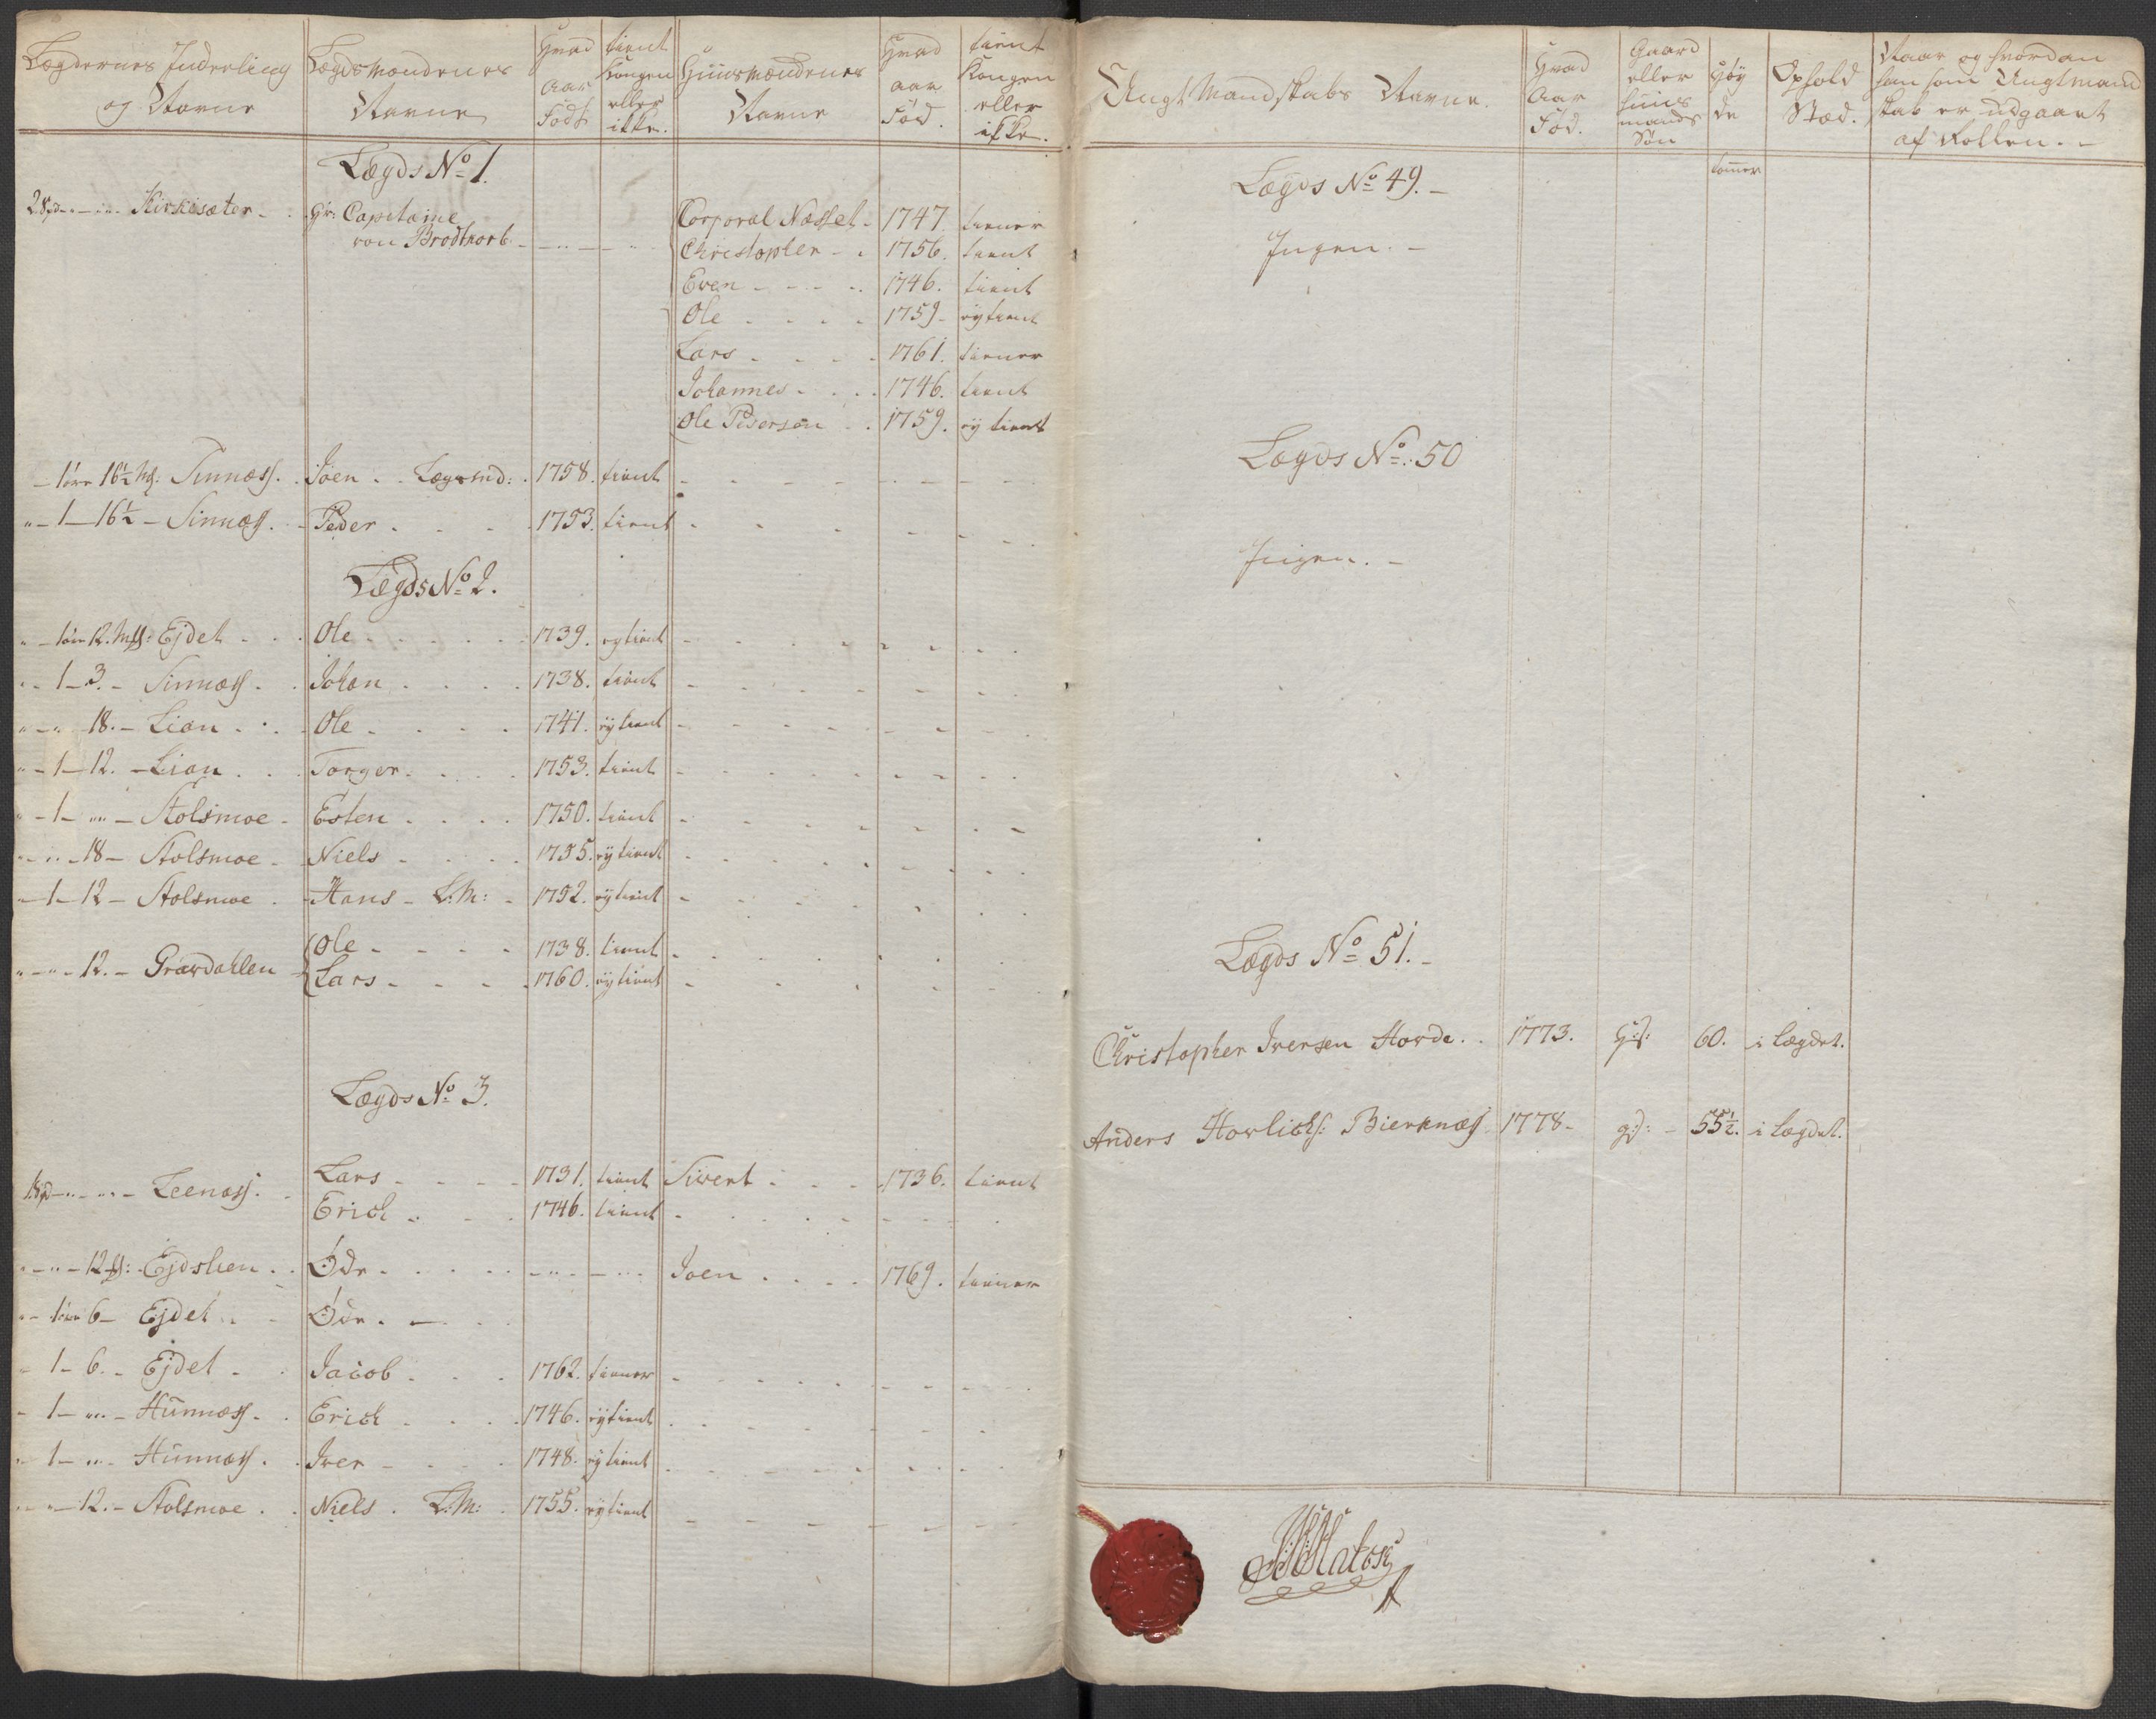 Lægdernes Inderling og Navne | Lægdsmændenes Navne | Hvad Aar Født | tient Kongen eller ikke. | Huusmændenes Navne | Hvad aar Fød. | tient Kongen eller ikke.
Lægds No 1.
Kirkisæter | Capitaine von Brodtkorb | Corporal Næsset | 1747. | tiener
Christopher | 1756. | tient
Even | 1746. | tient
Ole | 1759 | ey tient
Lars | 1761. | tiener
Johannes | 1746. | tient
Ole Pedersøn | 1759. | ey tient
1 øre 16½ Mß: Sinnæss. | Joen Lægsmd: | 1758. | tient
1 16½ Sinnæss. | Peder | 1753. | tient
Lægds No 2.
12. Ejdet | Ole | 1739. | ey tient
1 3. Sinnæss | Johan | 1738. | tient
18. Lian | Ole | 1741. | ey tient
1 12. Lian | Torger | 1753. | tient
1 Stolsmoe | Esten | 1750. | tient
18 Stolsmoe | Niels | 1755. | ey tient
1 12 Stolsmoe | Hans L:M: | 1752. | ey tient
12. Grævdahlen | Ole | 1738. | tient
Lars | 1760. | ey tient
Lægds No 3.
Leenæss. | Lars | 1731. | tient | Sivert | 1736. | tient
Erich | 1746. | tient
12 Ejdslien | Øde | Joen | 1769. | tiener
6 Ejdet | Øde
1 6. Ejdet | Jacob | 1762. | tiener
1 Hunnæss. | Erich | 1746. | ey tient
1 Hunnæss. | Iver | 1748. | ey tient
12. Stolsmoe | Niels L:M: | 1755. | ey tient
Ungt Mandskabs Navne. | Hvad Aar Fød. | Gaard eller huusmands Søn | Høyde | Ophold Stæd. | Naar og hvordan han som Ungtmandskab er udgaaet af Rollen.
tomer
Lægds No 49.
Ingen.
Lægds No: 50
Ingen.
Lægds No 51.
Christopher Iversen Hovde | 1773. | G:s: | 60. | i Lægdet.
Anders Hovlichs: Bierknæss | 1778 | g:s: | 55½. | i Lægdet.